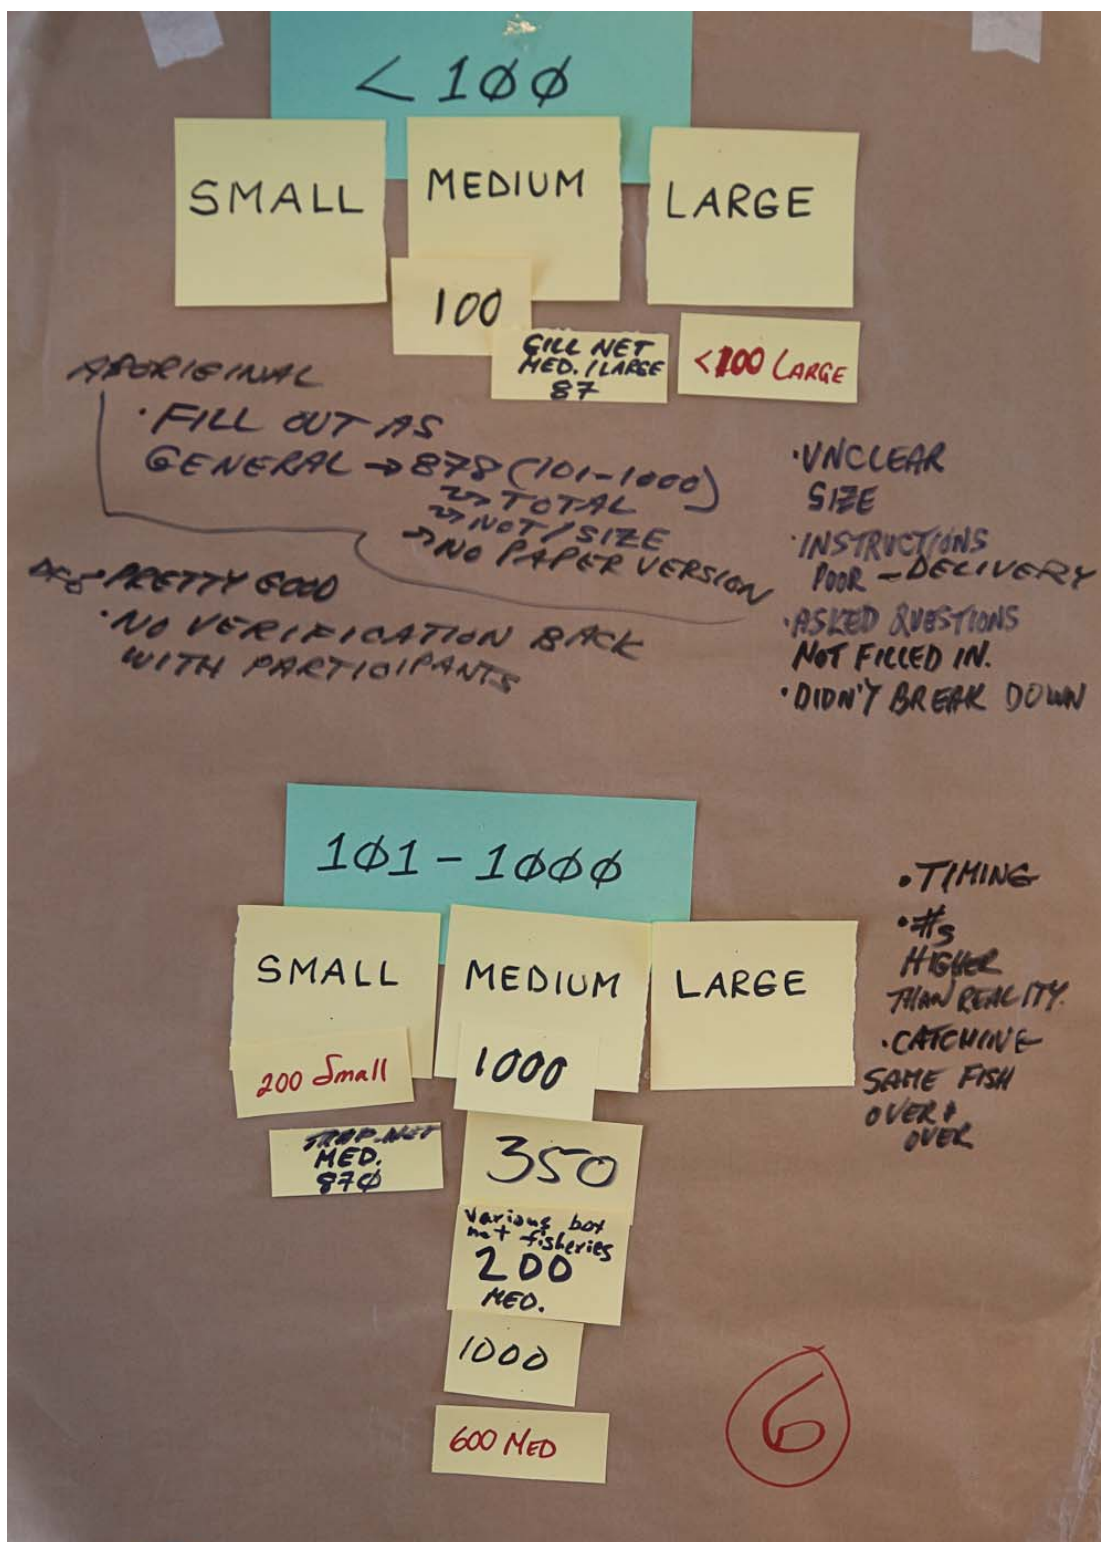 < 100
SMALL
MEDIUM
LARGE
100
GILL NET
MED. / LARGE
87
<100 LARGE
ABORIGINAL
· FILL OUT AS
GENERAL → 878 (101-1000)
→ TOTAL
→ NOT / SIZE
→ NO PAPER VERSION
- PRETTY GOOD
· NO VERIFICATION BACK
WITH PARTICIPANTS
· UNCLEAR
SIZE
· INSTRUCTIONS
POOR - DELIVERY
· ASKED QUESTIONS
NOT FILLED IN.
· DIDN'T BREAK DOWN
101 - 1000
SMALL
MEDIUM
LARGE
200 Small
TRAP-NET
MED.
870
1000
350
Various box
net fisheries
200
MED.
1000
600 MED
• TIMING
• #s
HIGHER
THAN REALITY.
· CATCHING
SAME FISH
OVER &
OVER
6